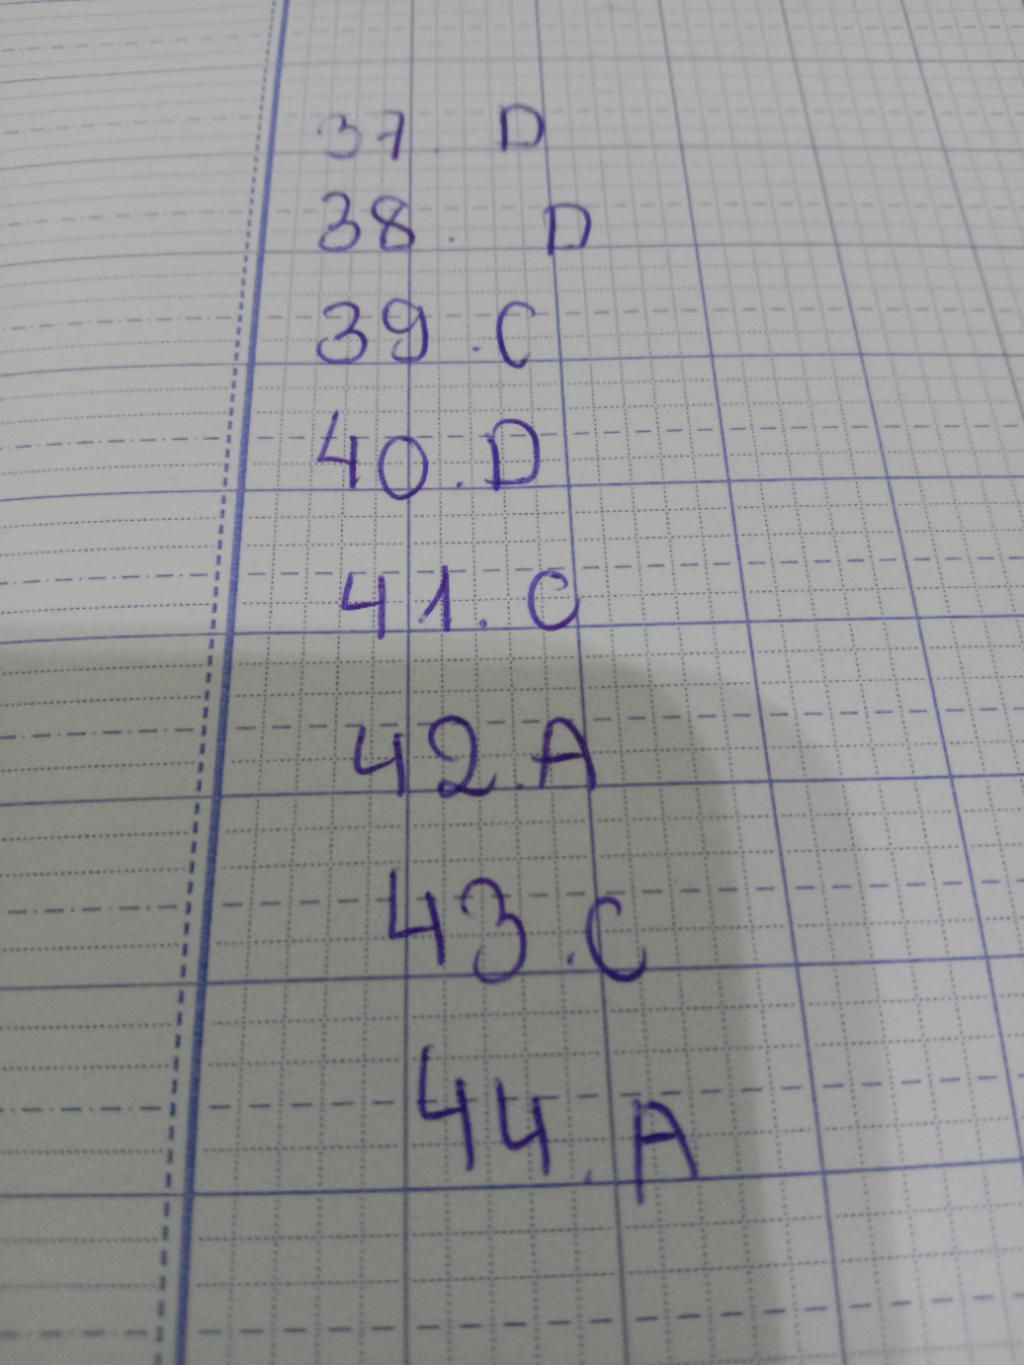 37. D
38. D
39. C
40. D
41. C
42. A
43. C
44. A